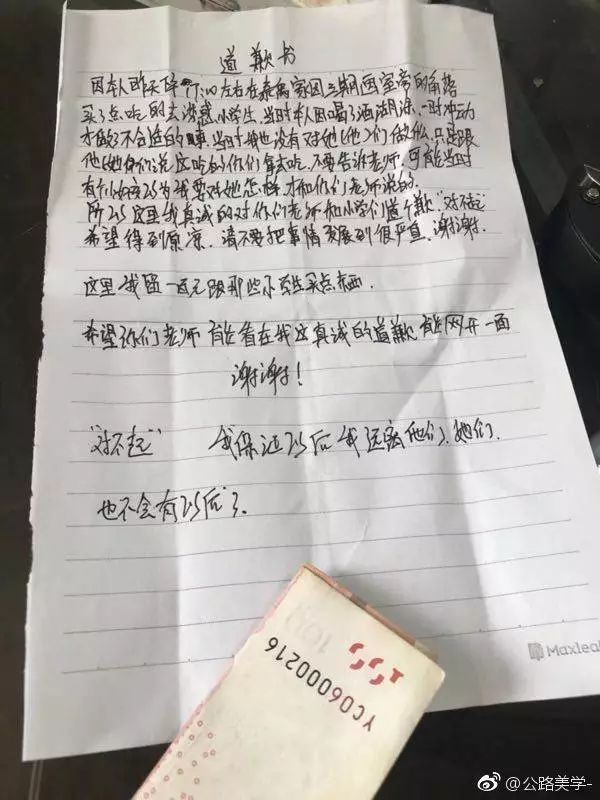 道歉书
因本人昨天下午17:00左右在泰禺家园三期画室旁的角落
买了点吃的去诱惑小学生,当时本人因喝了酒糊涂,一时冲动
才做了不合适的事,当时我也没有对她(他)们做什么,只是跟
他(她)们说这吃的你们拿去吃,不要告诉老师,可能当时
有个小女孩以为我要对她怎样,才和你们老师说的。
所以这里我真诚的对你们老师和小学们道个歉"对不起"
希望得到原凉,请不要把事情发展到很严重,谢谢。
这里我留一百元跟那些小学生买点东西,
希望你们老师能看在我这真诚的道歉能网开一面
谢谢!
"对不起" 我保证以后我远离他们、她们,
也不会有以后了。
YC06000216
100
Maxleaf
@公路美学-